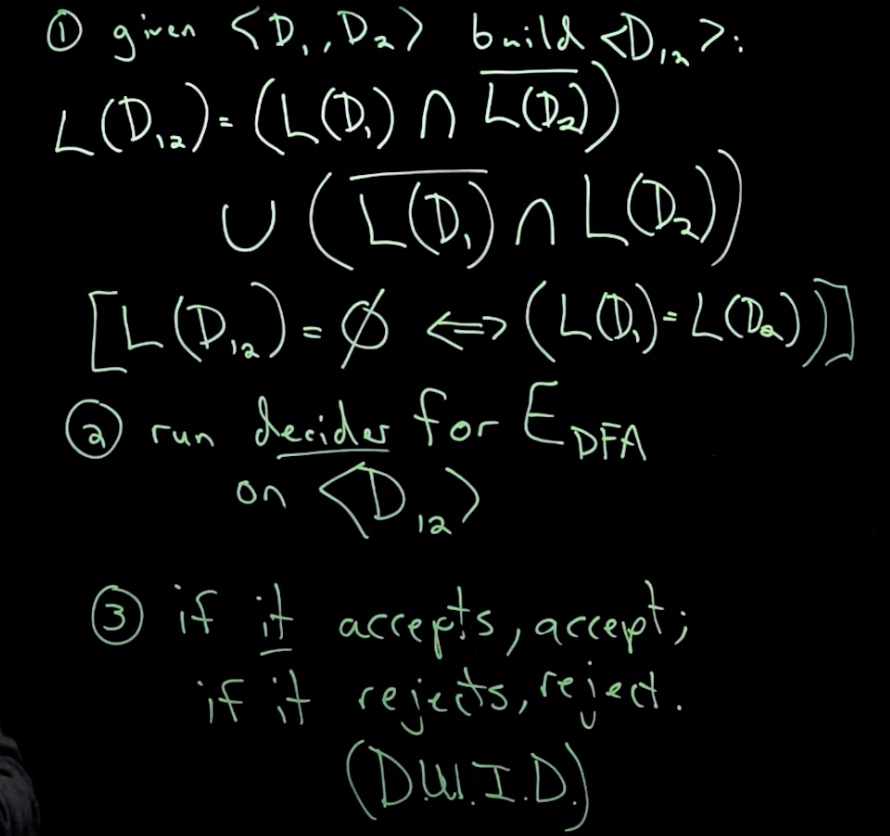 ① given <D₁,D₂> build <D₁₂>:
L(D₁₂)= (L(D₁) ∩ \overline{L(D₂)})
∪ (\overline{L(D₁)} ∩ L(D₂))
[L(D₁₂)=∅ ⟺ (L(D₁)=L(D₂))]
② run decider for E_DFA
on <D₁₂>
③ if it accepts, accept;
if it rejects, reject.
(D.W.I.D.)